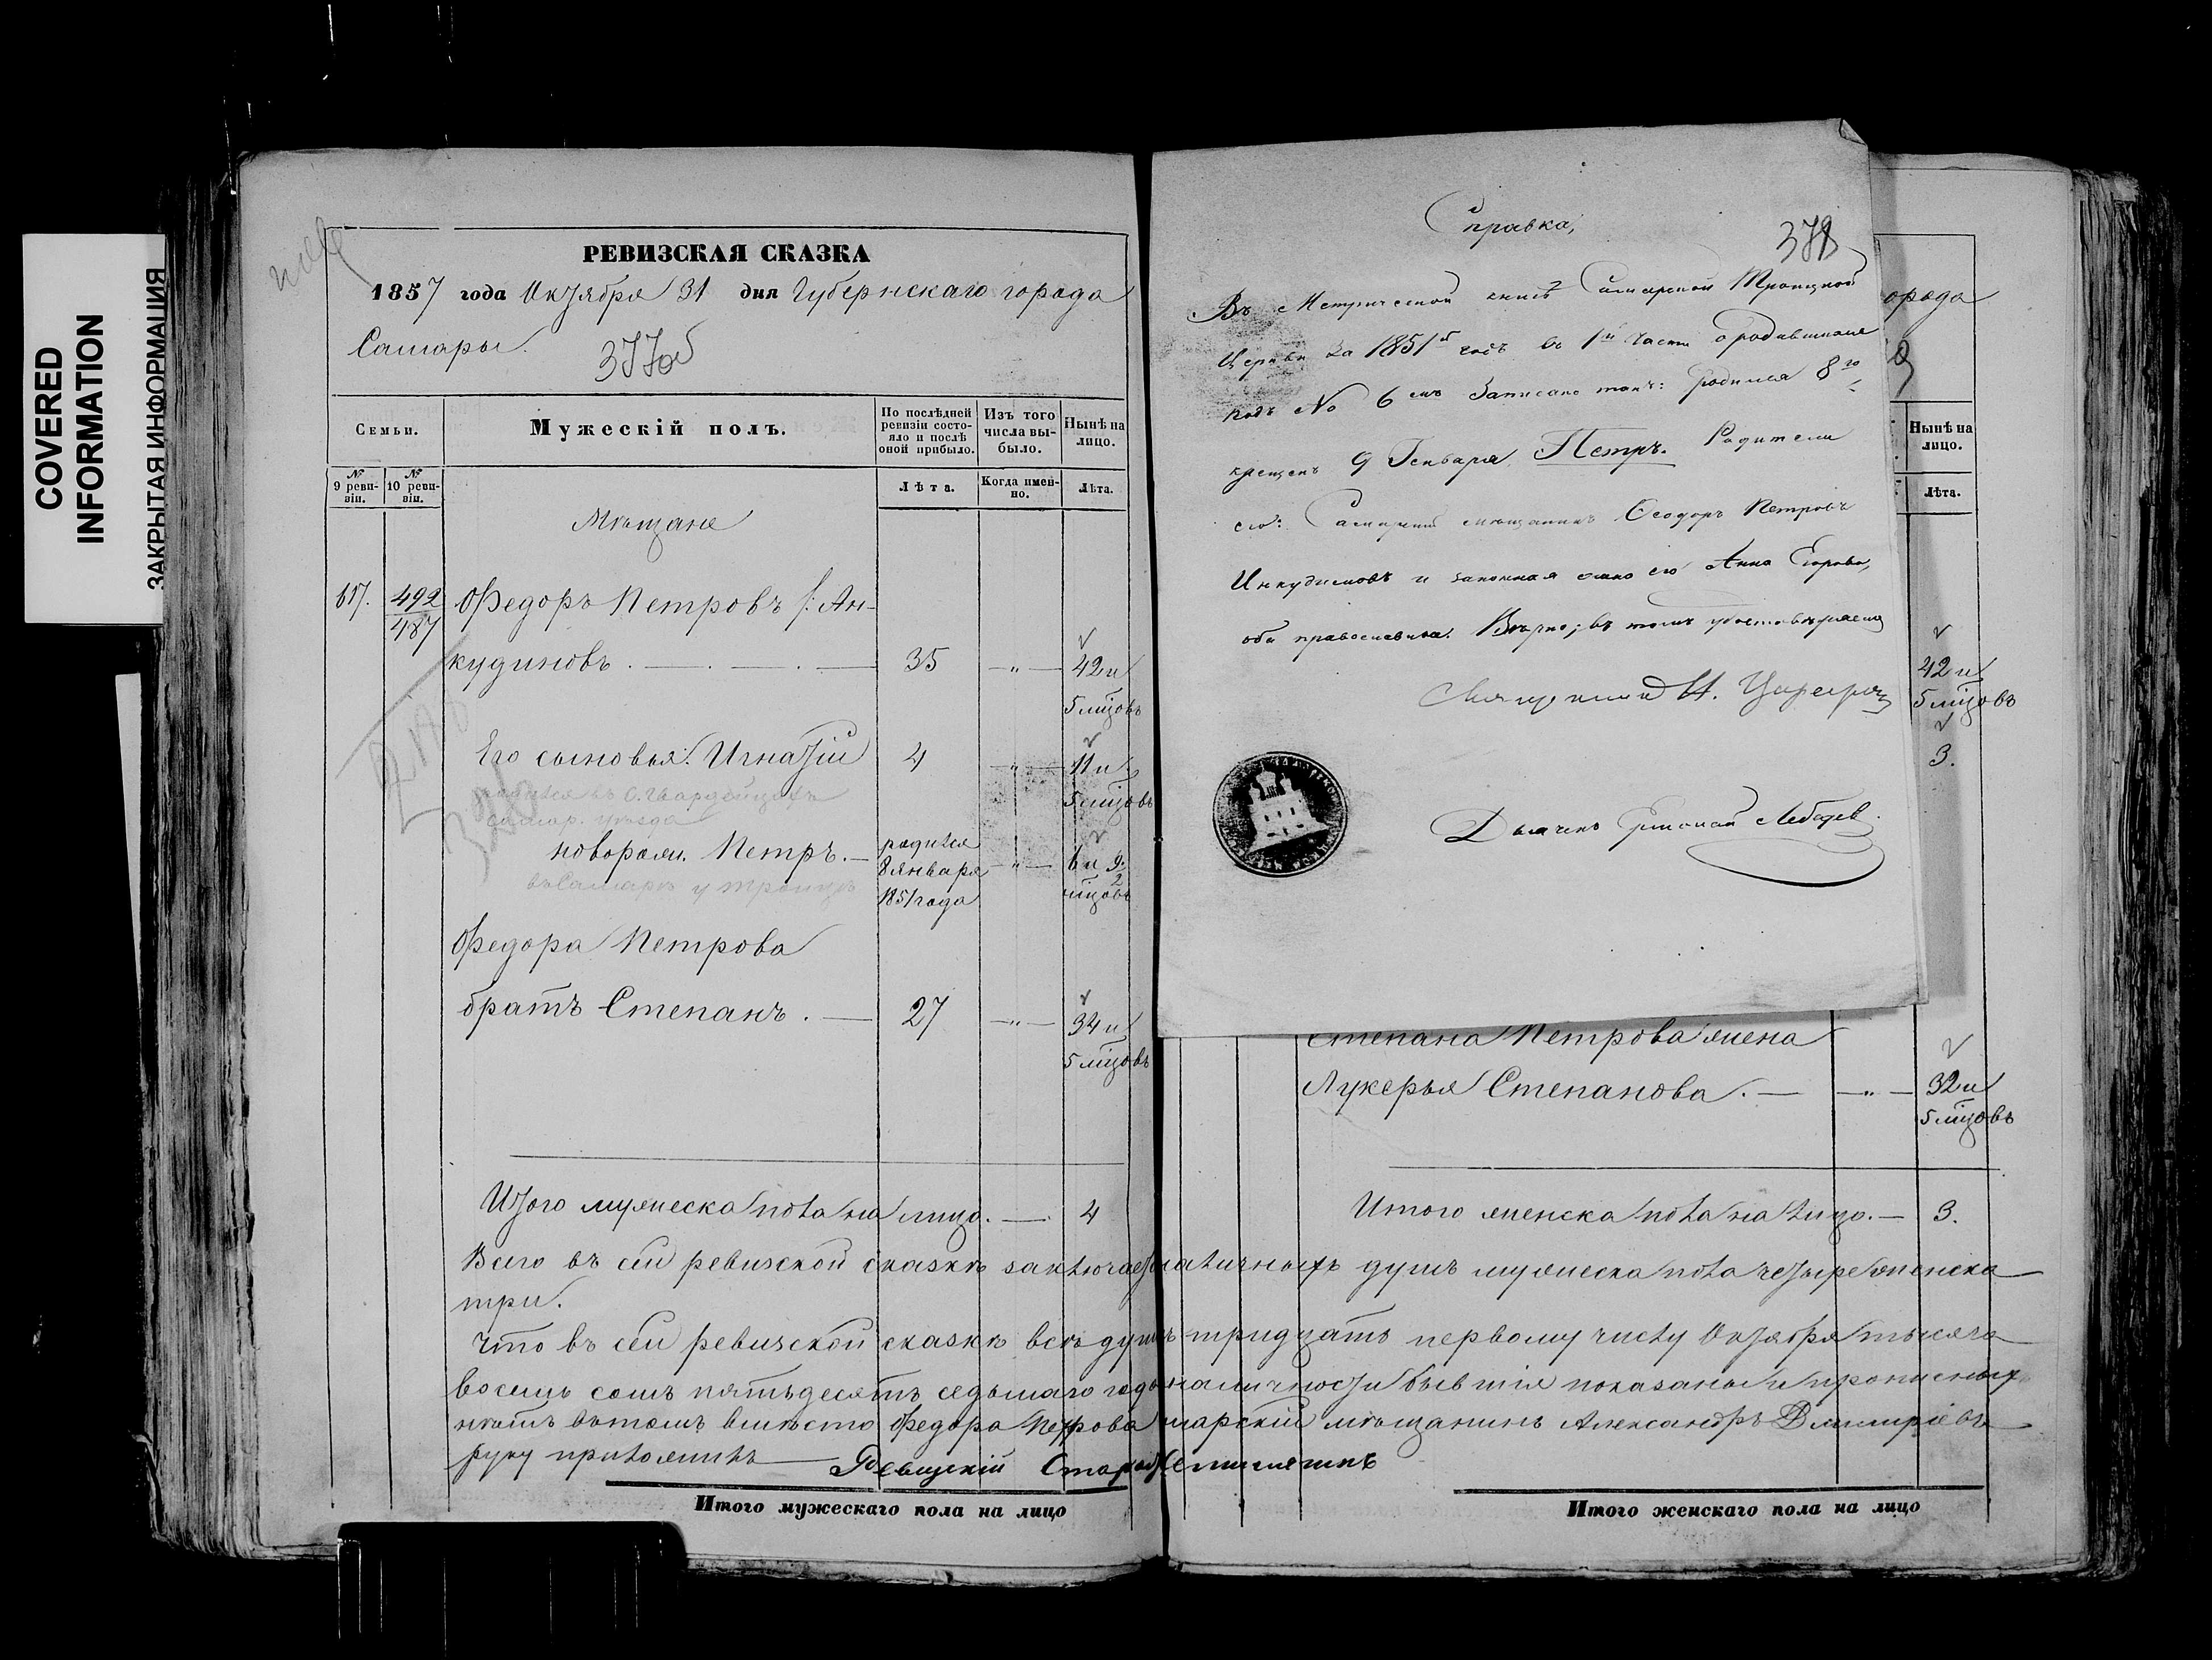 COVERED
INFORMATION
ЗАКРЫТАЯ ИНФОРМАЦИЯ
РЕВИЗСКАЯ СКАЗКА
1857 года Октября 31 дня Губернскаго города
Самары.
377об
Семьи.
№ 9 реви-зіи.
№ 10 реви-зіи.
Мужескій полъ.
По послѣдней ревизіи состо-яло и послѣ оной прибыло.
Изъ того числа вы-было.
Нынѣ на лицо.
Лѣта.
Когда имен-но.
Лѣта.
Мѣщане
617. 492 Федоръ Петровъ /: Ан-
487
кудиновъ . — . — . — 35 — " — 42 и
5 мцовъ
Его сыновья: Игнатій 4 — " — 11 и
родился въ С.
5 мцовъ
самар. уѣзда
новорожд. Петръ. — родился
8 января — " — 6 и 9
1851 года мцовъ
въ Самарѣ у Троицы
Федора Петрова
братъ Степанъ . — 27 — " — 34 и
5 мцовъ
Итого мужеска пола на лицо. — 4
Справка,
378
Въ Метрической книгѣ Самарской Троицкой
Церкви за 1851й годъ въ 1й части о родившихся
подъ № 6 мъ записано такъ: родился 8го
крещенъ 9 Генваря Петръ. Родители
его: Самарскій мѣщанинъ Ѳеодоръ Петровъ
Инкудиновъ и законная жена его Анна Егорова,
оба православные. Вѣрно; въ томъ удостовѣряемъ
Дьячекъ Лебедев.
орода
Нынѣ на лицо.
Лѣта.
42 и
5 мцовъ
3.
Степана Петрова жена
Лукерья Степанова. — — " — 32 и
5 мцовъ
Итого женска пола на лицо. — 3.
Всего въ сей ревизской сказкѣ заключает наличныхъ душъ мужеска пола четыре женска
три.
Что въ сей ревизской сказкѣ всѣ душ тридцать первому числу Октября тысяча
восемь сотъ пятьдесятъ седьмаго года наличности бывшія показаны и прописныхъ
нѣтъ въ томъ вмѣсто Федора Петрова марскій мѣщанинъ Александръ Димитріевъ
руку приложилъ — Ревизскій
Итого мужескаго пола на лицо
Итого женскаго пола на лицо